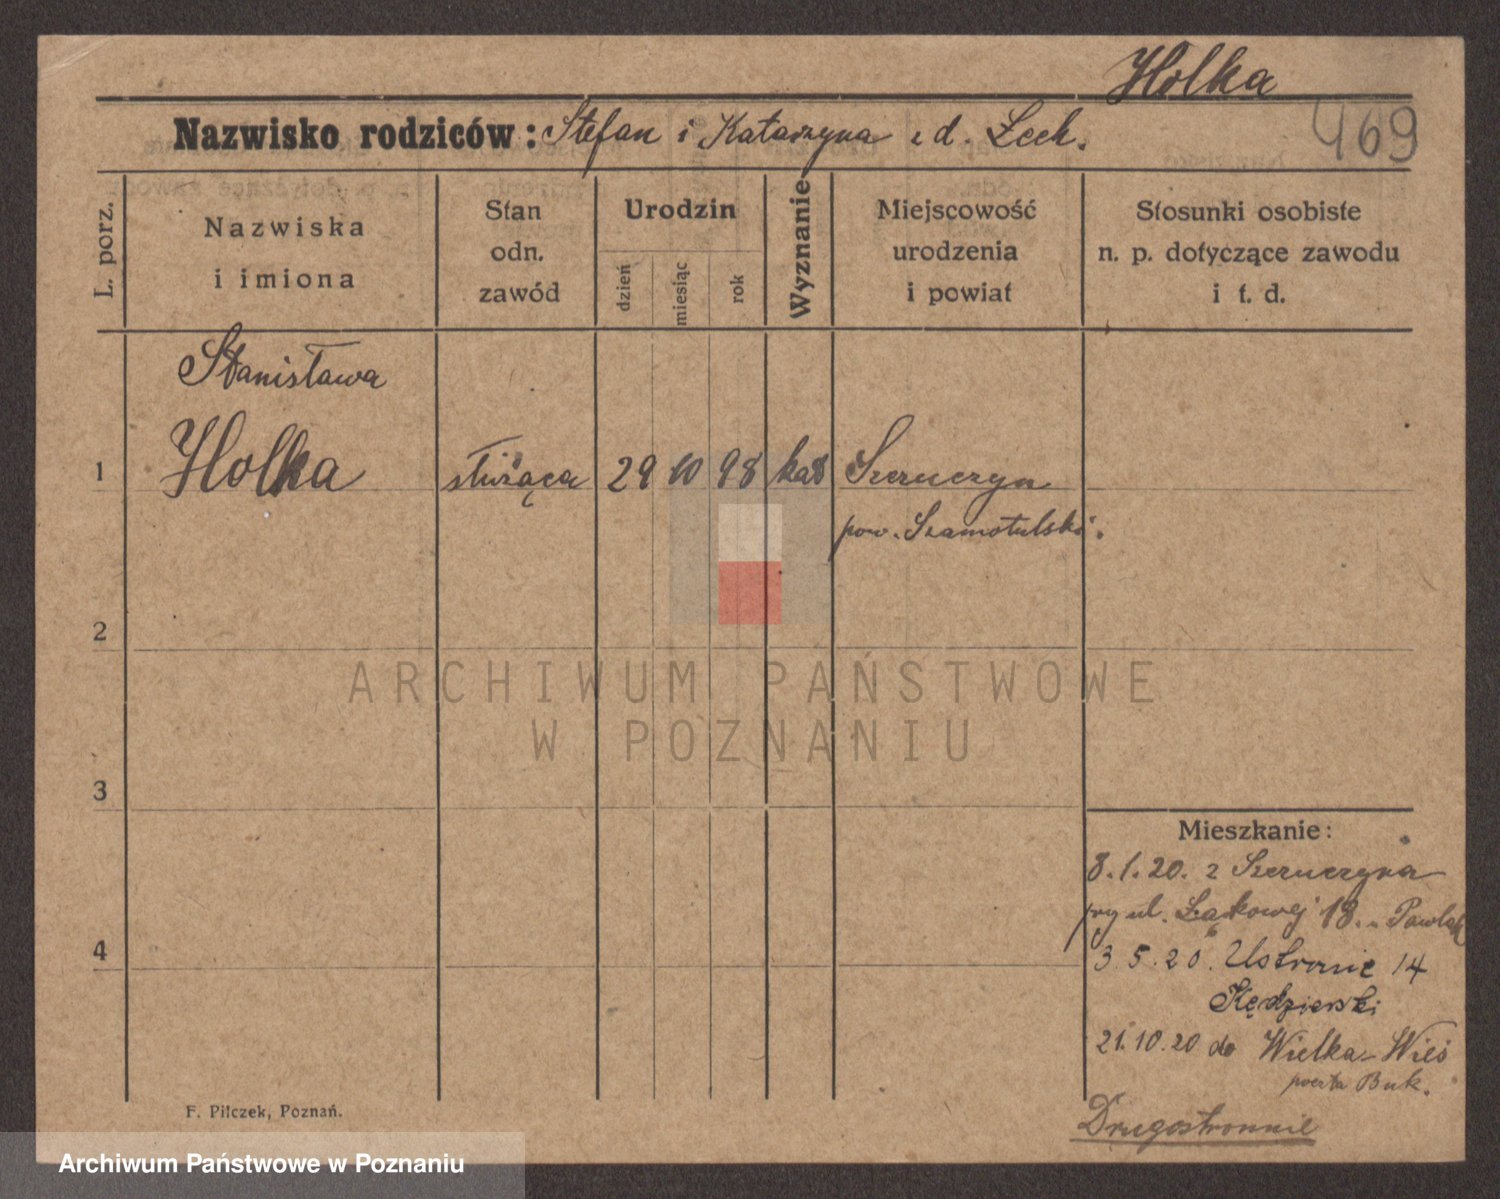 Holka
469
Nazwisko rodziców: Stefan i Katarzyna z d. Lech.
L. porz.
Nazwiska
i imiona
Stan
odn.
zawód
Urodzin
dzień
miesiąc
rok
Wyznanie
Miejscowość
urodzenia
i powiat
Stosunki osobiste
n. p. dotyczące zawodu
i t. d.
Stanisława
1 Holka służąca 29 10 98 kat Szczuczyn
pow. Szamotulski.
2
3
4
Mieszkanie:
8.1.20. z Szczuczyna
przy ul. Łąkowej 18. Pawlak
3.5.20. Ustronie 14
Kędzierski
21.10.20 do Wielka-Wieś
poczta Buk.
Drugostronnie
F. Pilczek, Poznań.
ARCHIWUM PAŃSTWOWE
W POZNANIU
Archiwum Państwowe w Poznaniu